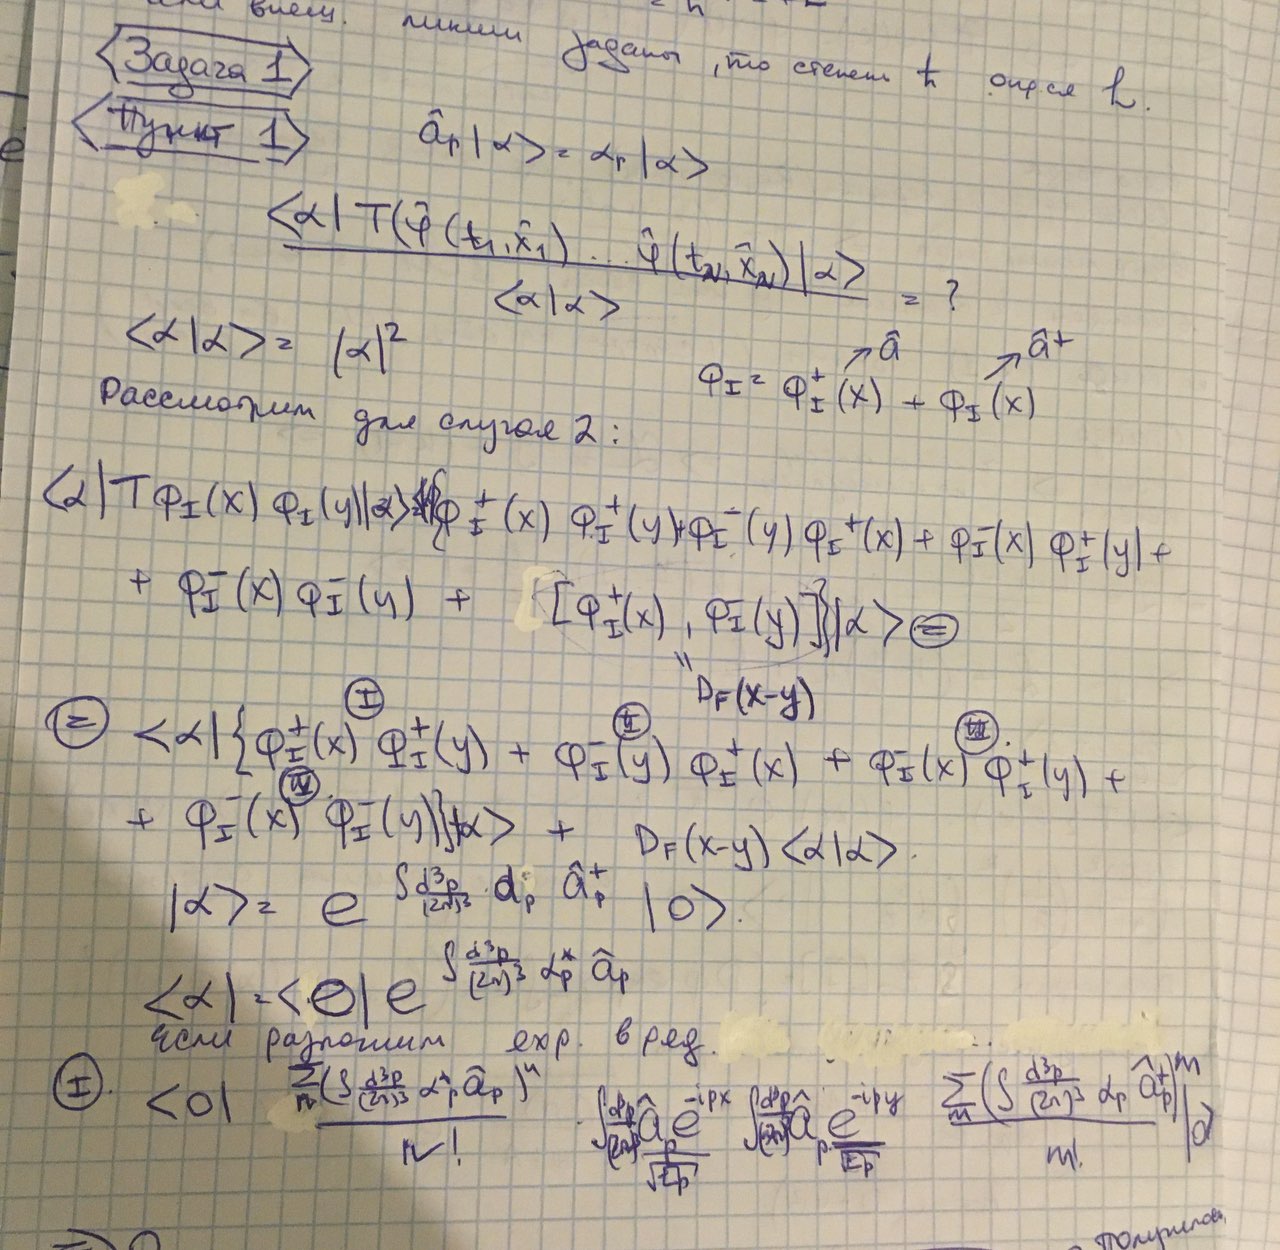 внеш. линии заданы, то степень ħ опр-ся L.
Задача 1
Пункт 1
â_p |α> = α_p |α>
<α| T(φ̂(t₁, x̂₁) ... φ̂(t_N, x̂_N) |α>
<α|α>
= ?
<α|α> = |α|²
φ_I = φ_I^+(x) + φ_I(x)
↗ â ↗ â+
Рассмотрим для случая 2:
<α| T φ_I(x) φ_I(y) |α> {φ_I^+(x) φ_I^+(y) + φ_I^-(y) φ_I^+(x) + φ_I^-(x) φ_I^+(y) +
+ φ_I^-(x) φ_I^-(y) + [φ_I^+(x), φ_I^-(y)]} |α> =
" D_F(x-y)
= <α| {φ_I^+(x) φ_I^+(y) + φ_I^-(y) φ_I^+(x) + φ_I^-(x) φ_I^+(y) +
I II III
+ φ_I^-(x) φ_I^-(y)} |α> + D_F(x-y) <α|α>.
IV
|α> = e^{∫ d³p/(2π)³ · α_p â_p^+} |0>.
<α| = <0| e^{∫ d³p/(2π)³ α_p^* â_p}
Если разложим exp. в ряд.
I. <0| Σ_n (∫ d³p/(2π)³ α_p^* â_p)^n / n! ∫ d³p/(2π)³ â_p e^{-ipx}/√E_p ∫ d³p/(2π)³ â_p e^{-ipy}/√E_p Σ_m (∫ d³p/(2π)³ α_p â_p^+)^m / m! |0>